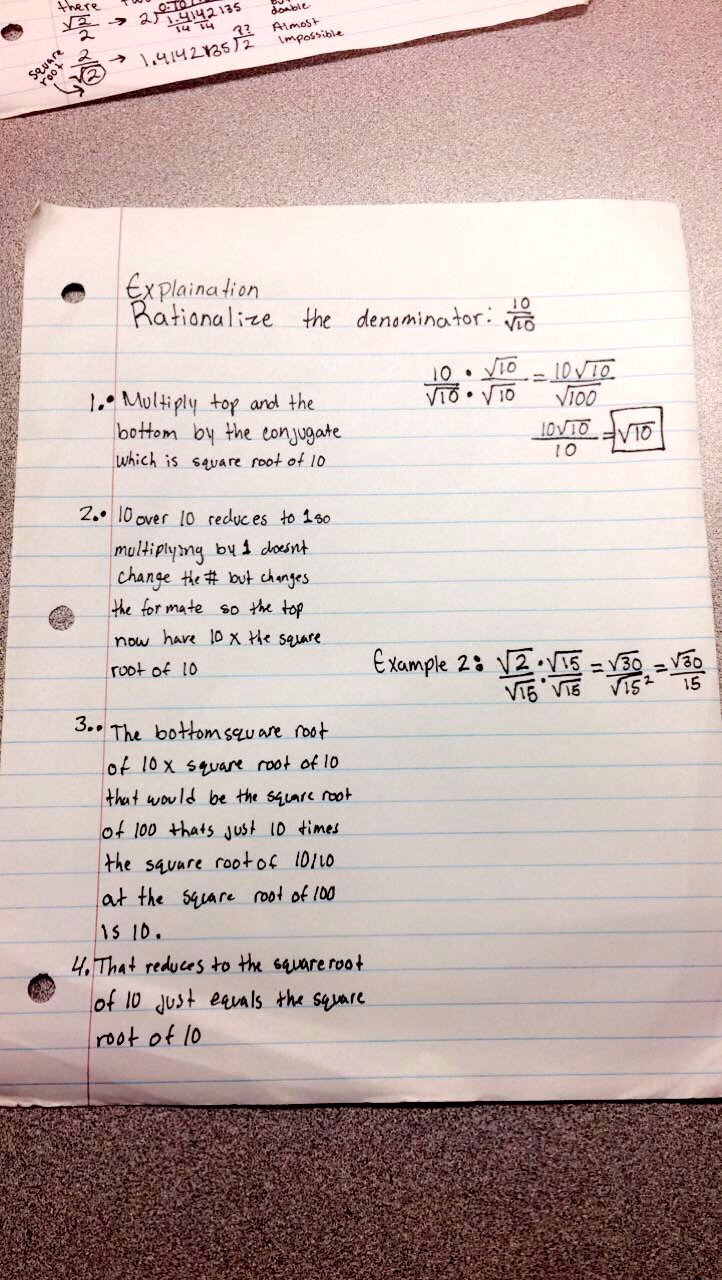 there
√2/2 → 2)1.4142135 Doable
14 14
square root 2/√2 → 1.4142135)2 ?? Almost Impossible
Explaination
Rationalize the denominator: 10/√10
10/√10 · √10/√10 = 10√10/√100
10√10/10 = √10
1.• Multiply top and the
bottom by the conjugate
which is square root of 10
2.• 10 over 10 reduces to 1 so
multiplying by 1 doesnt
change the # but changes
the formate so the top
now have 10 x the square
root of 10
Example 2: √2/√15 · √15/√15 = √30/√15² = √30/15
3.• The bottom square root
of 10 x square root of 10
that would be the square root
of 100 thats just 10 times
the square root of 10/10
at the square root of 100
is 10.
4. That reduces to the square root
of 10 just equals the square
root of 10